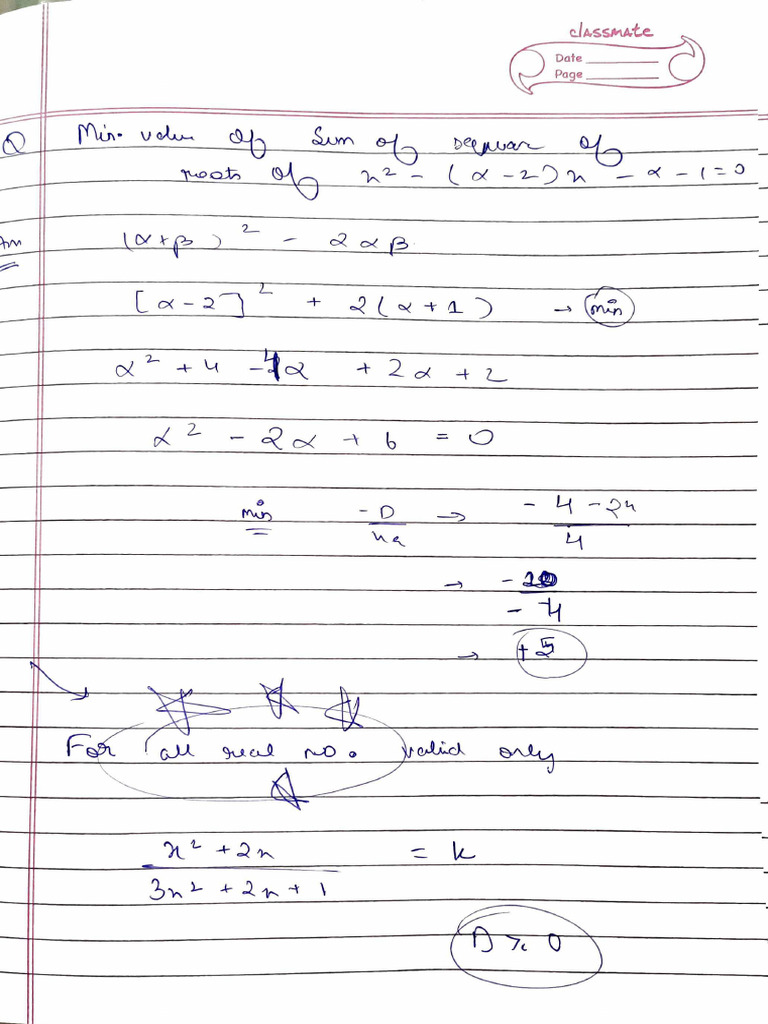 classmate
Date
Page
Q Min. value of Sum of squar of
roots of x² - (α - 2)x - α - 1 = 0
Ans (α + β)² - 2αβ
[α - 2]² + 2(α + 1) → min
α² + 4 - 4α + 2α + 2
α² - 2α + 6 = 0
min -D/4a → - 4 - 24 / 4
→ -20 / -4
→ +5
For all real no. valid only
x² + 2x / 3x² + 2x + 1 = k
D ≥ 0